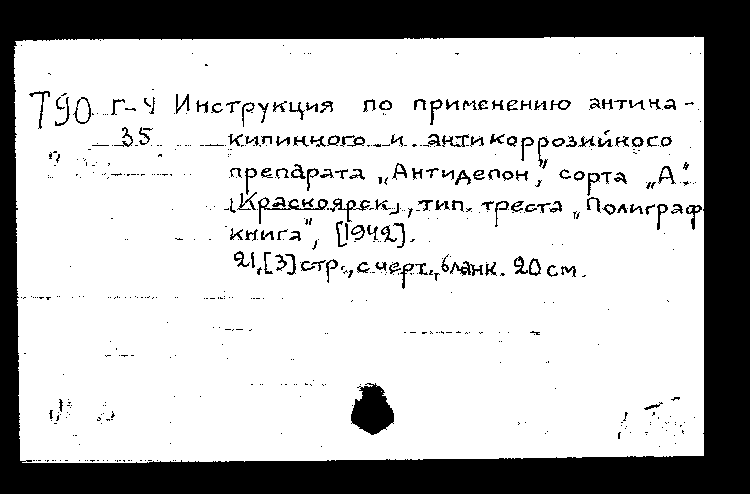 Т90 Г-4 Инструкция по применению антина-
35 кипинного и антикоррозийного
препарата „Антидепон", сорта „А".
[Красноярск], тип. треста „Полиграф
книга", [1942].
21,[3] стр., с черт., бланк. 20 см.